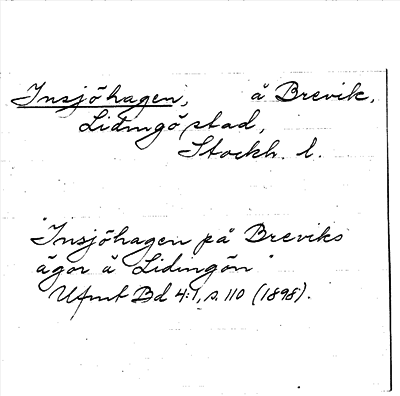 Insjöhagen, å Brevik,
Lidingö stad,
Stockh. l.
"Insjöhagen på Breviks
ägor å Lidingön"
Ufmt Bd 4:1, s. 110 (1898).